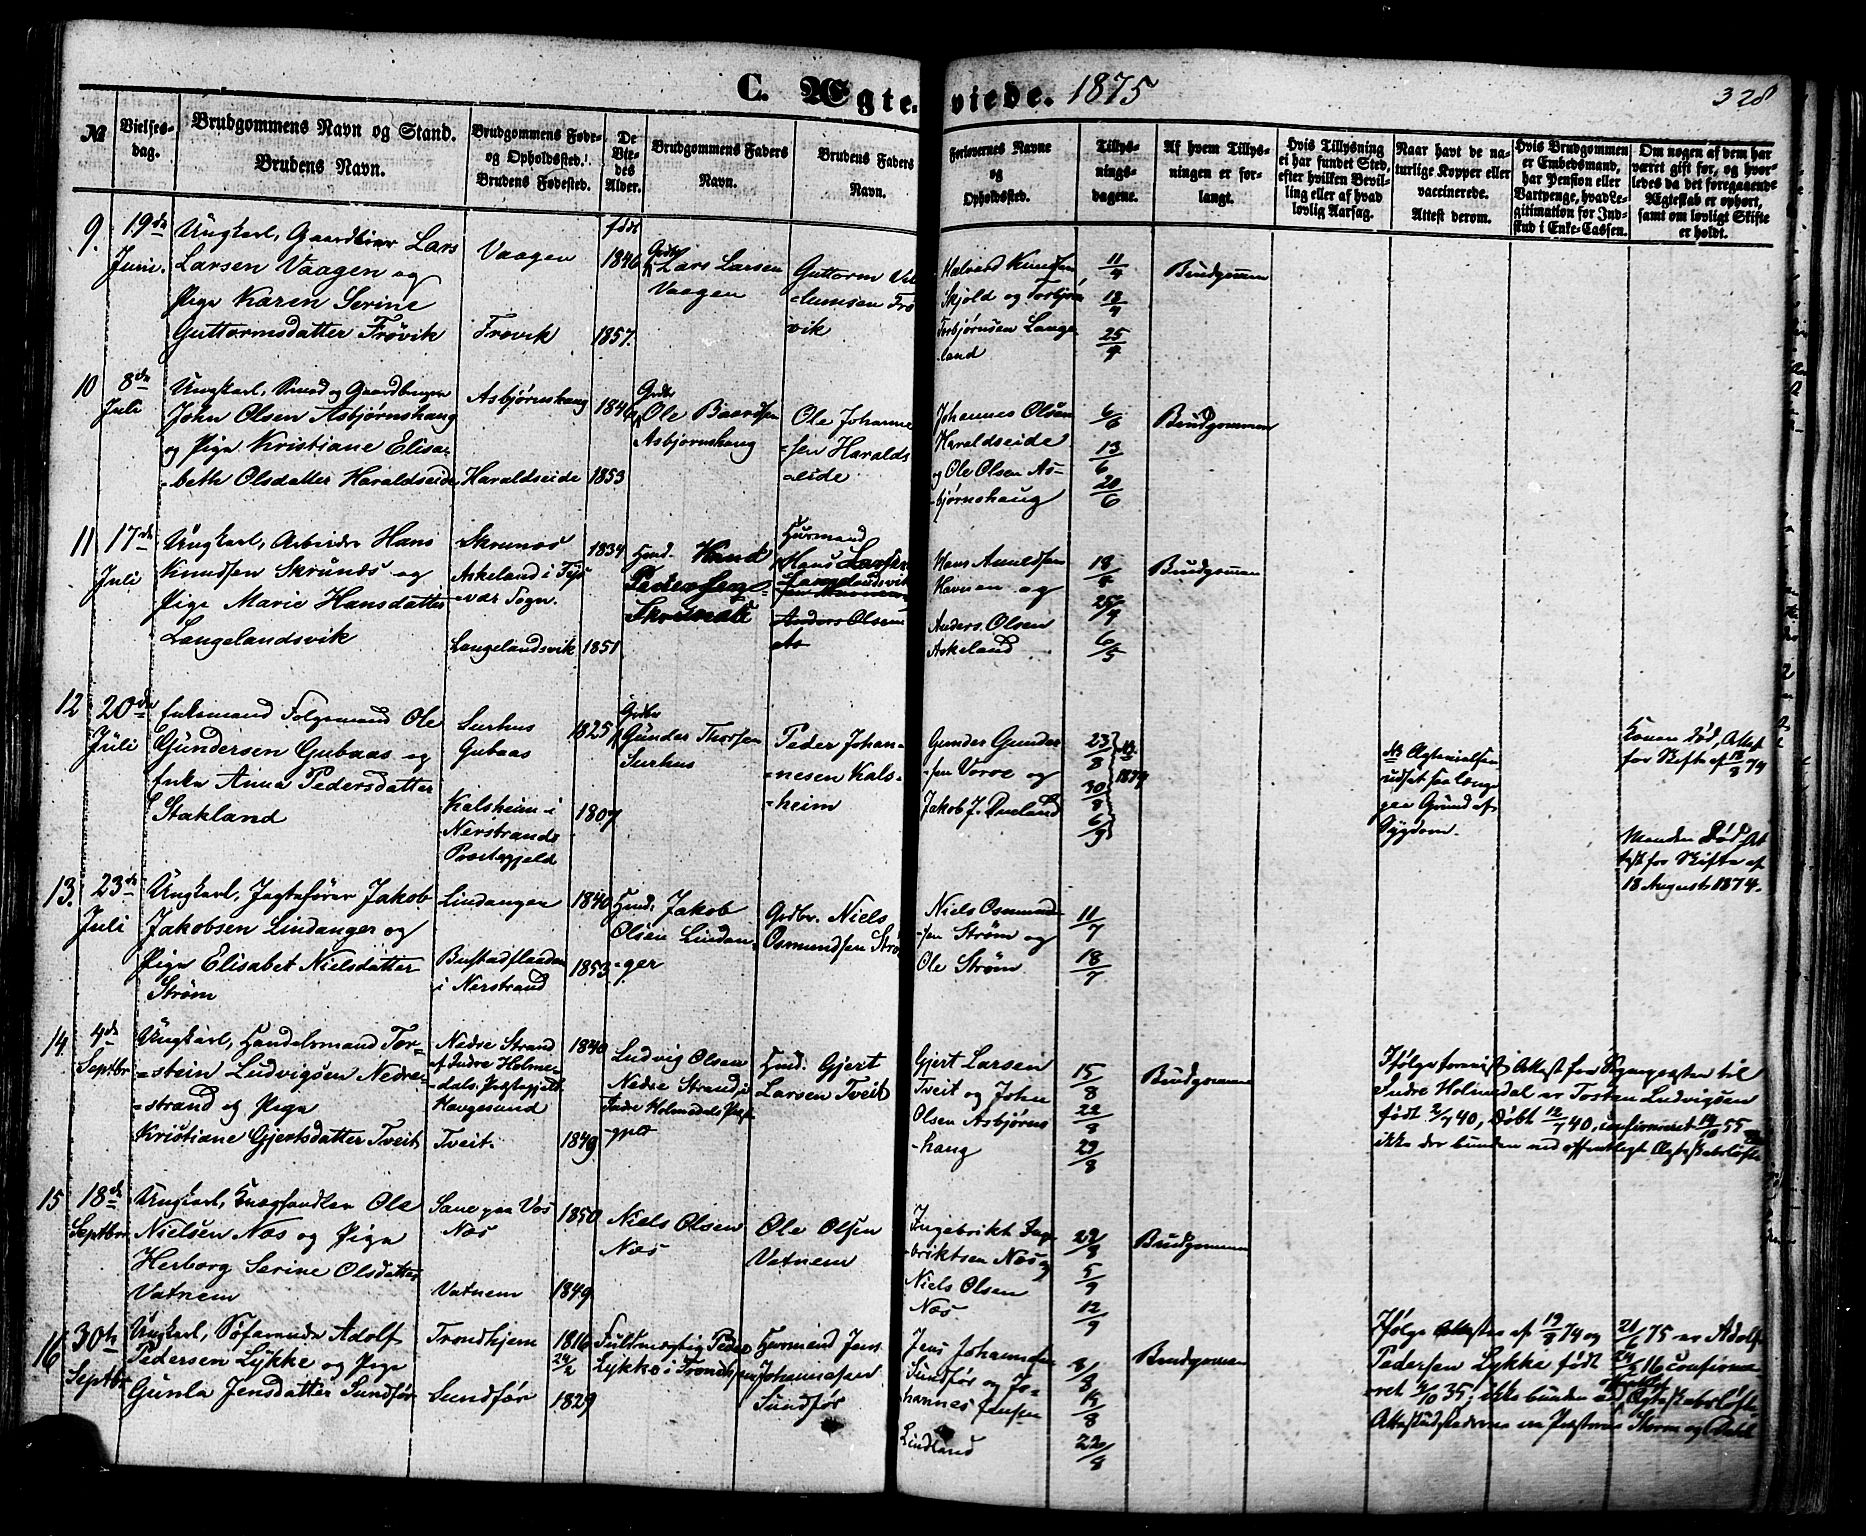 C. Ægteviede. 1875
328
№
Vielses-
dag.
Brudgommens Navn og Stand.
Brudens Navn.
Brudgommens Føde-
og Opholdssted.
Brudens Fødested.
De
Vie-
des
Alder.
Brudgommens Faders
Navn.
Brudens Faders
Navn.
Forlovernes Navne
og
Opholdssted.
Tillys-
nings-
dagene.
Af hvem Tillys-
ningen er for-
langt.
Hvis Tillysning
ei har fundet Sted,
efter hvilken Bevil-
ling eller af hvad
lovlig Aarsag.
Naar havt de na-
turlige Kopper eller
vaccinerede.
Attest derom.
Hvis Brudgommen
er Embedsmand,
har Pension eller
Vartpenge, hvad Le-
gitimation for Ind-
skud i Enke-Cassen.
Om nogen af dem har
været gift før, og hvor-
ledes da det foregaaende
Ægteskab er ophørt,
samt om lovligt Skifte
er holdt.
9.
19de
Juni.
Ungkarl, Lars
Larsen Vaagen og
Pige Karen Serine
Guttormsdatter Frøvik
Vaagen
Frøvik
født
1846
1857.
Grdbr
Lars Larsen
Vaagen
Guttorm
vik
Halvard Knudsen
Skjold og Torbjørn
Torbjørnsen Lange-
land
11/4
18/4
25/4
Brudgommen
10
8de
Juli
Ungkarl, Smed og Gaardbruger
John Olsen Asbjørnshaug
og Pige Kristiane Elisa-
beth Olsdatter Haraldseide
Asbjørnshaug
Haraldseide
1846
1853
Grdbr
Ole Baardsen
Asbjørnshaug
Ole Johanne-
-sen Haralds
-eide
Johannes Olsen
Haraldseide
og Ole Olsen As-
bjørnshaug
6/6
13/6
20/6
Brudgommen
11
17de
Juli
Ungkarl, Arbeider Hans
Knudsen Skrunæs og
Pige Marie Hansdatter
Langelandsvik
Skrunæs
Askeland i Tys-
-vær Sogn.
Langelandsvik
1834
1851
Hmd.
Husmand
Hans Larsen
Langelandsvik
Anders Olsen
As
Hans Amundsen
Havnen og
Anders Olsen
Askeland
18/4
25/4
6/5
Brudgommen
12
20de
Juli
Enkemand Følgemand Ole
Gundersen Gubaas og
Enke Anna Pedersdatter
Stakland
Surhus
Gubaas
Kalsheim i
Nerstrands
Præstegjeld
1825
1807
Grdbr
Gunder Thorsen
Surhus
Peder Johan-
-nesen Kals-
-heim
Gunder Gunder-
-sen Vorve og
Jakob J.
23/8
30/8
6/9
1874
NB Ægtevielsen
udsat saalænge
paa Grund af
Sygdom.
Konen død, Attest
for Skifte af 12/8 74
Manden død, At-
test for Skifte af
18 August 1874.
13.
23de
Juli
Ungkarl, Jagtefører Jakob
Jakobsen Lindanger og
Pige Elisabet Nielsdatter
Strøm
Lindanger
i Nerstrand
1840
1853
Hmd. Jakob
Olsen Lindan-
-ger
Grdbr. Niels
Osmundsen Strøm
Niels Osmund-
-sen Strøm og
Ole Strøm
11/7
18/7
14.
4de
Septbr
Ungkarl, Handelsmand Tor-
-stein Ludvigsen Nedre-
-strand og Pige
Kristiane Gjertsdatter Tveit
Nedre Strand
af Indre Holme-
dals Præstegjeld
Haugesund
Tveit.
1840
1849
Ludvig Olsen
Nedre Strand i
Indre Holmedals Præste-
gjeld
Hmd. Gjert
Larsen Tveit
Gjert Larsen
Tveit og John
Olsen Asbjørns-
haug
15/8
22/8
29/8
Brudgommen
Ifølge forevist Attest fra Sognepræsten til
Indre Holmedal er Tosten Ludvigsen
født 2/7 40, Døbt 12/7 40, confirmeret 14/10 55
ikke der bunden ved offentligt Ægteskabsløfte
15
18de
Septbr.
Ungkarl, Ole
Nielsen Næs og Pige
Herborg Serine Olsdatter
Vatnem
Sane paa Vos
Næs
Vatnem
1850
1849
Niels Olsen
Næs
Ole Olsen
Vatnem
Ingebrikt Inge-
briktsen Næs og
Niels Olsen
Næs
29/8
5/9
12/9
Brudgommen
16
30te
Septbr
Ungkarl, Søfarende Adolf
Pedersen Lykke og Pige
Gunla Jensdatter Sundfør
Trondhjem
Sundfør
1816
24/2
1829
Fuldmægtig Peder
Lykke i Trondhjem
Husmand Jens
Johannesen
Sundfør
Jens Johannesen
Sundfør og Jo-
hannes Jensen
Lindland
8/8
15/8
22/8
Brudgommen
Ifølge Attester af 19/9 74 og 21/6 75 er Adolf
Pedersen Lykke født 24/2 16 confirme-
ret 4/10 35, ikke bunden ved Ægteskabsløfte
Attestudstederne ere Præsterne Storm og Dahl